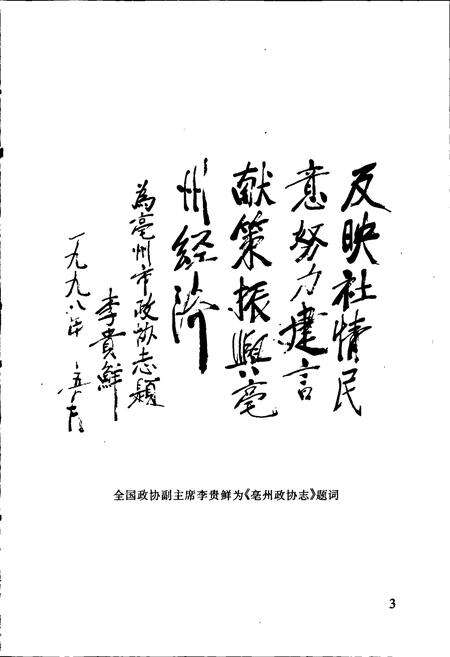 反映社情民
意努力建言
献策振兴亳
州经济
为亳州市政协志题
李贵鲜
一九九八年
全国政协副主席李贵鲜为《亳州政协志》题词
3